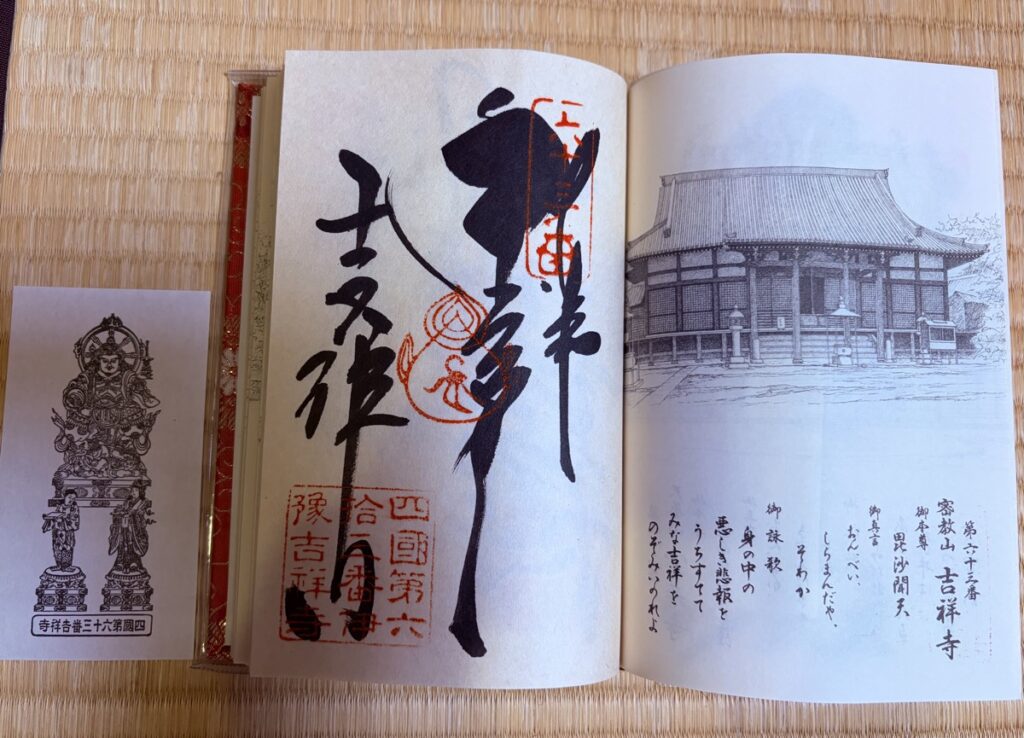 奉拝
吉祥寺
六十三番
四國第六
拾三番伊
豫吉祥寺
第六十三番
密教山 吉祥寺
御本尊
毘沙聞天
御真言
おんべい、
しらまんだや、
そわか
御詠歌
身の中の
悪しき悲報を
うちすてて
みな吉祥を
のぞみいのれよ
四國第六十三番吉祥寺